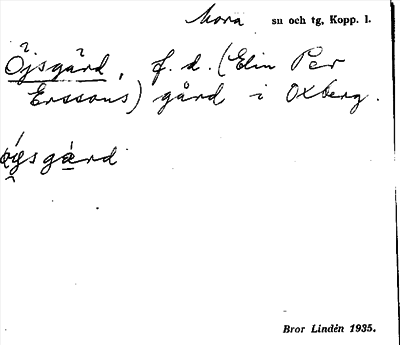 Mora su och tg, Kopp. l.
Öjsgård, f. d. (Elin Per
Erssons) gård i Oxberg.
Bror Lindén 1935.